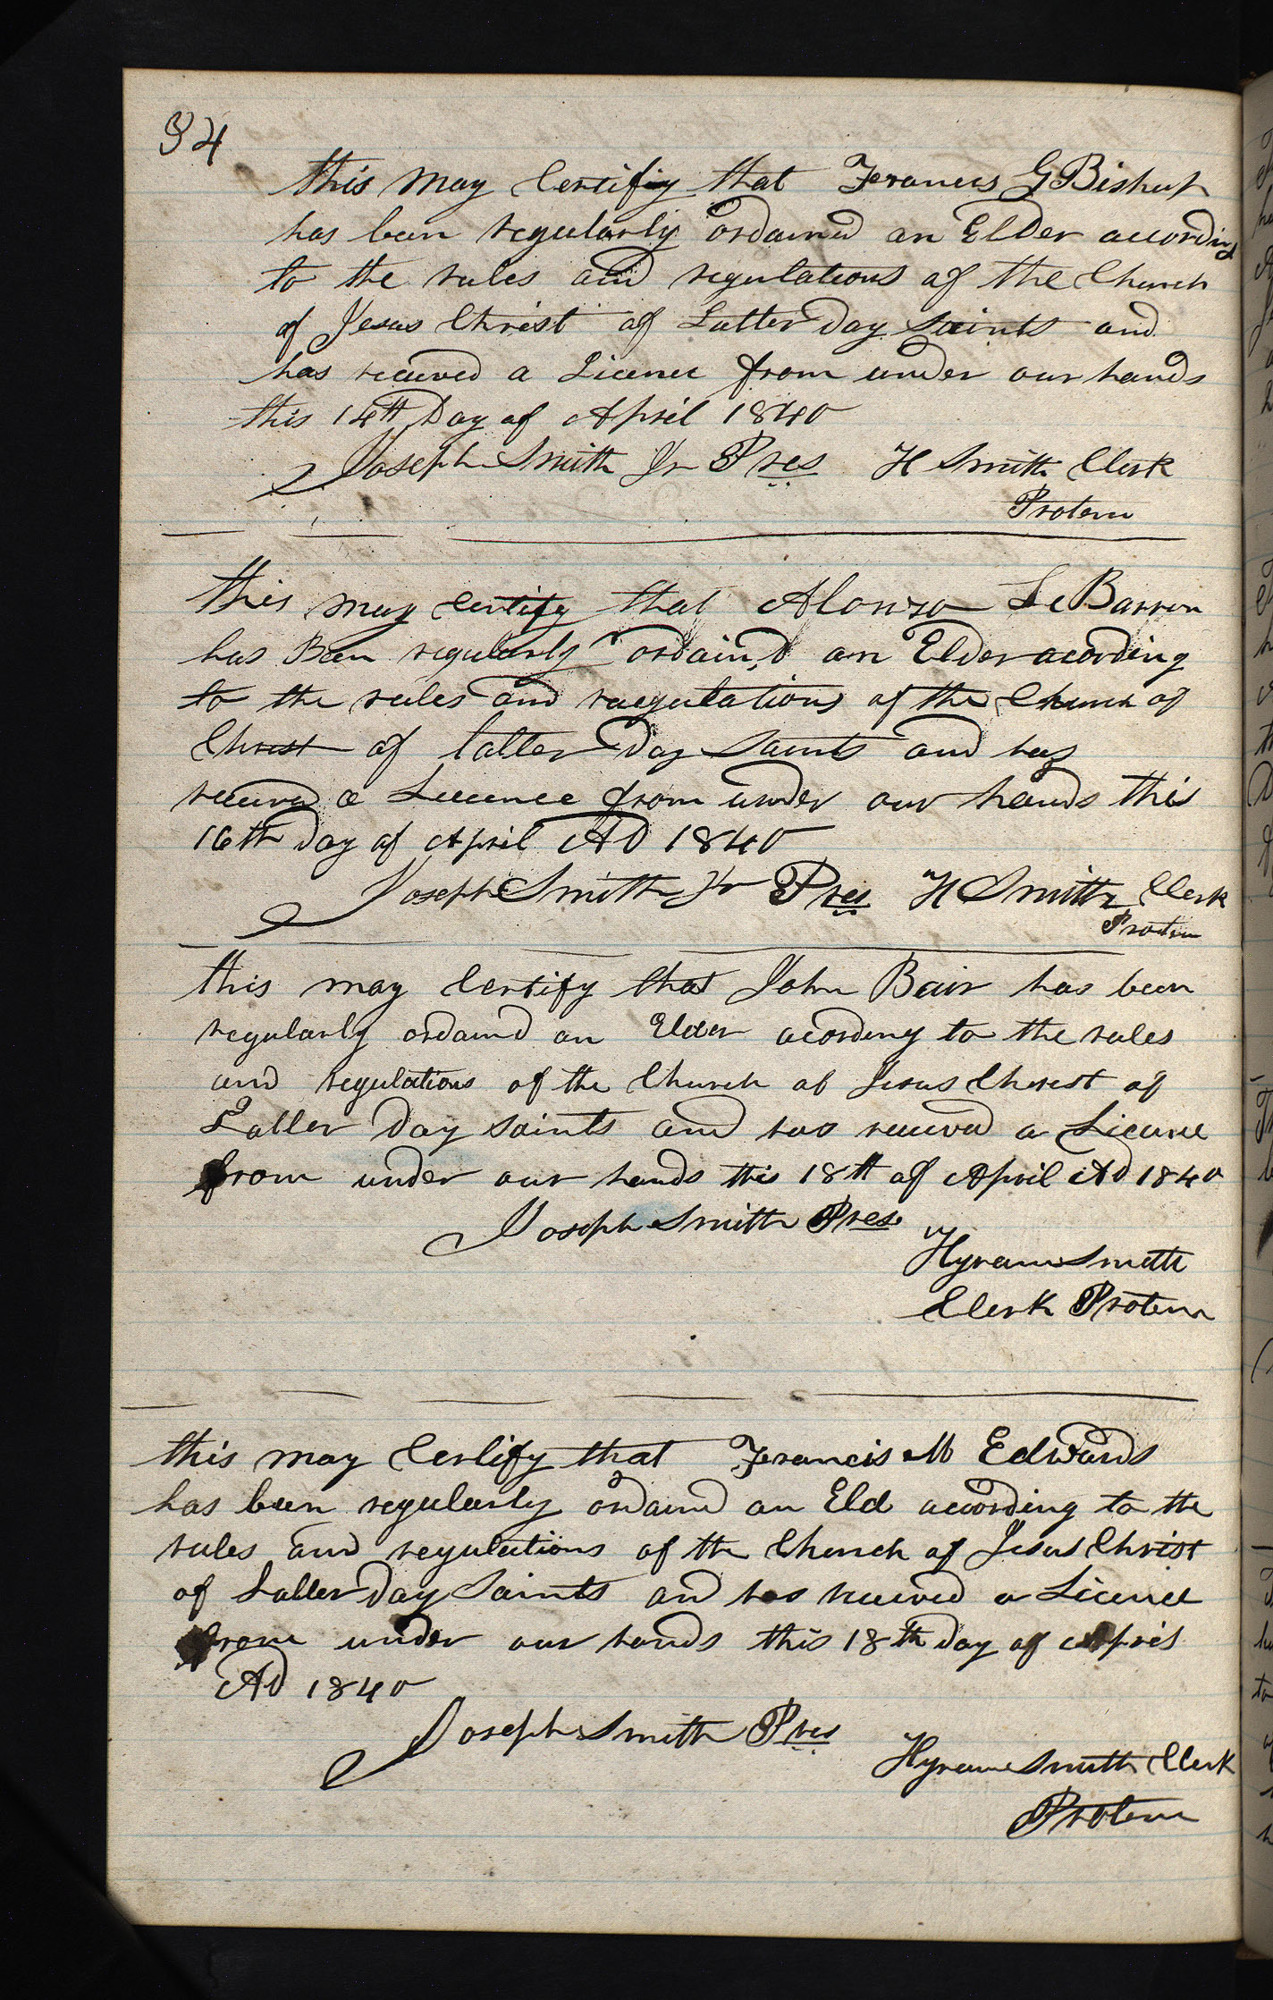 94
this may Certifiy that Francis G Bishop
has been regularly ordained an Elder according
to the rules and regulations of the Church
of Jesus Christ of Latter Day Saints and
has received a Licence from under our hands
this 14th Day of April 1840
Joseph Smith Jr Pres H Smith Clerk
Protem
this may certify that Alonzo LeBarron
has Been regularly ordain,d an Elder acording
to the rules and raegulations of the Church of
Christ of latter Day Saints and has
receivd a Licence from under our hands this
16th Day of April AD 1840
Joseph Smith Jr Pres H Smith Clerk
Protem
this may Certify that John Bair has been
regularly ordaind an Elder acording to the rules
and regulations of the Church of Jesus Christ of
Latter Day Saints and has received a Licence
from under our hands this 18th of April AD 1840
Joseph Smith Pres
Hyram Smith
Clerk Protem
this may Certify that Francis M Edwards
has been regularly ordaind an Eld according to the
rules and regulations of the Church of Jesus Christ
of Latter Day Saints and has received a Licence
from under our hands this 18th Day of April
AD 1840
Joseph Smith Pres
Hyram Smith Clerk
Protem